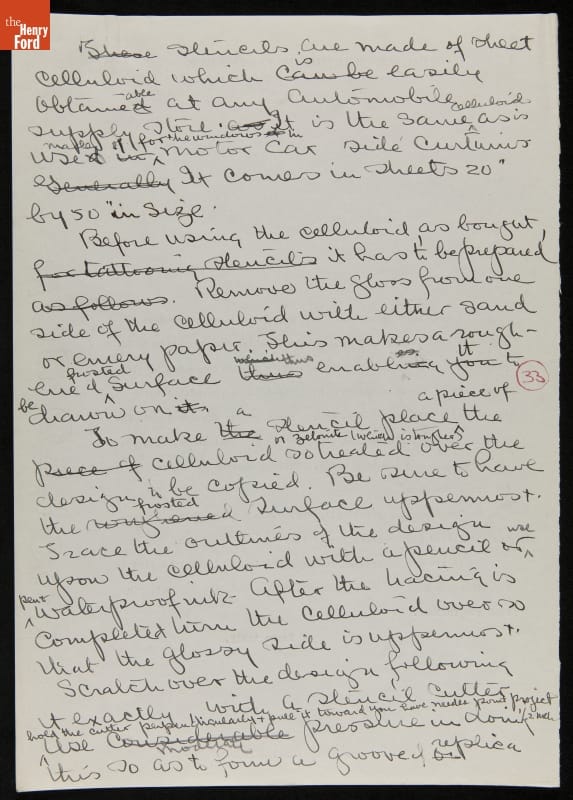 the
Henry
Ford
These stencils are made of sheet
celluloid which can be is easily
obtained able at any automobile
supply store. as It is the same celluloid as is
used in made up for the windows in motor car side curtains
Generally It comes in sheets 20"
by 50" in size.
Before using the celluloid, as bought,
for tattooing stencils it has to be prepared
as follows. Remove the gloss from one
side of the celluloid with either sand
or emery paper. This makes a rough-
ened frosted surface thus enabling you it to
be drawn on it.
33
To make the a stencil place the a piece of
piece of celluloid or zelonite (which is tougher) so treated over the
design to be copied. Be sure to have
the roughened frosted surface uppermost.
Trace the outlines of the design
upon the celluloid with a pencil or use
pen waterproof ink. After the tracing is
completed turn the celluloid over so
that the glossy side is uppermost.
Scratch over the design following
it exactly with a stencil cutter
hold the cutter perpendicularly + pull it toward you have needle point project 1/2 inch
Use Considerable moderate pressure in doing
this so as to form a grooved replica